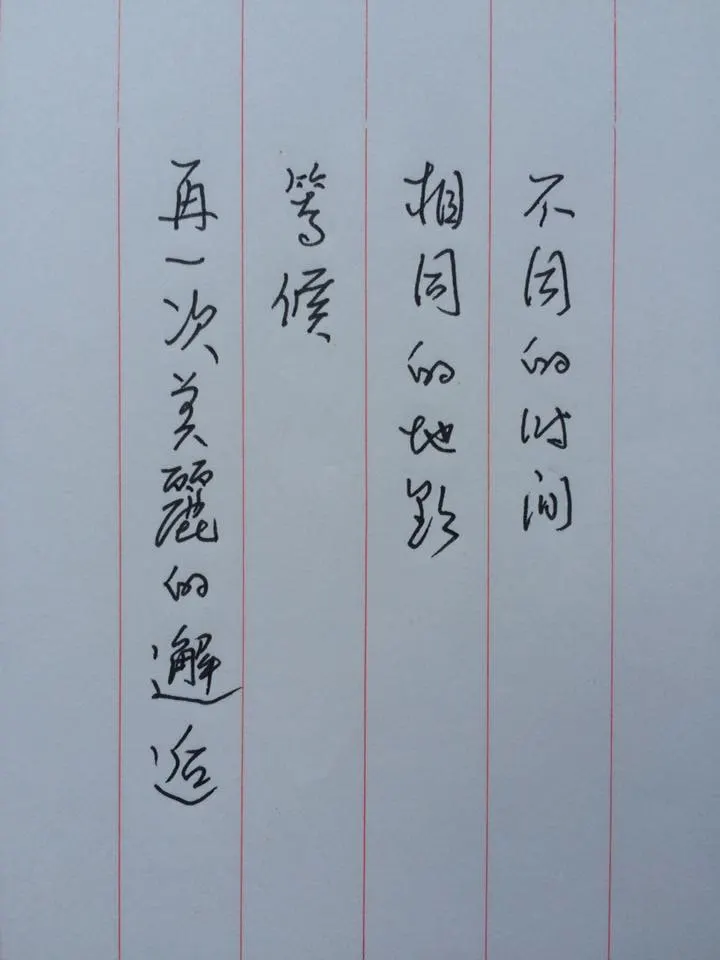 不同的时间
相同的地點
等候
再一次美麗的邂逅